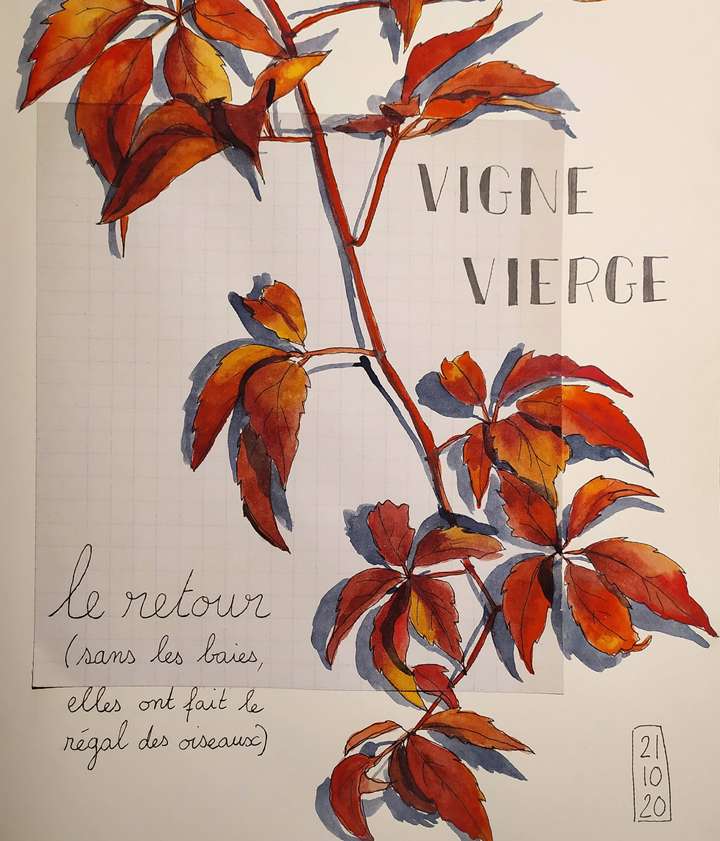 VIGNE
VIERGE
le retour
(sans les baies,
elles ont fait le
régal des oiseaux)
21
10
20